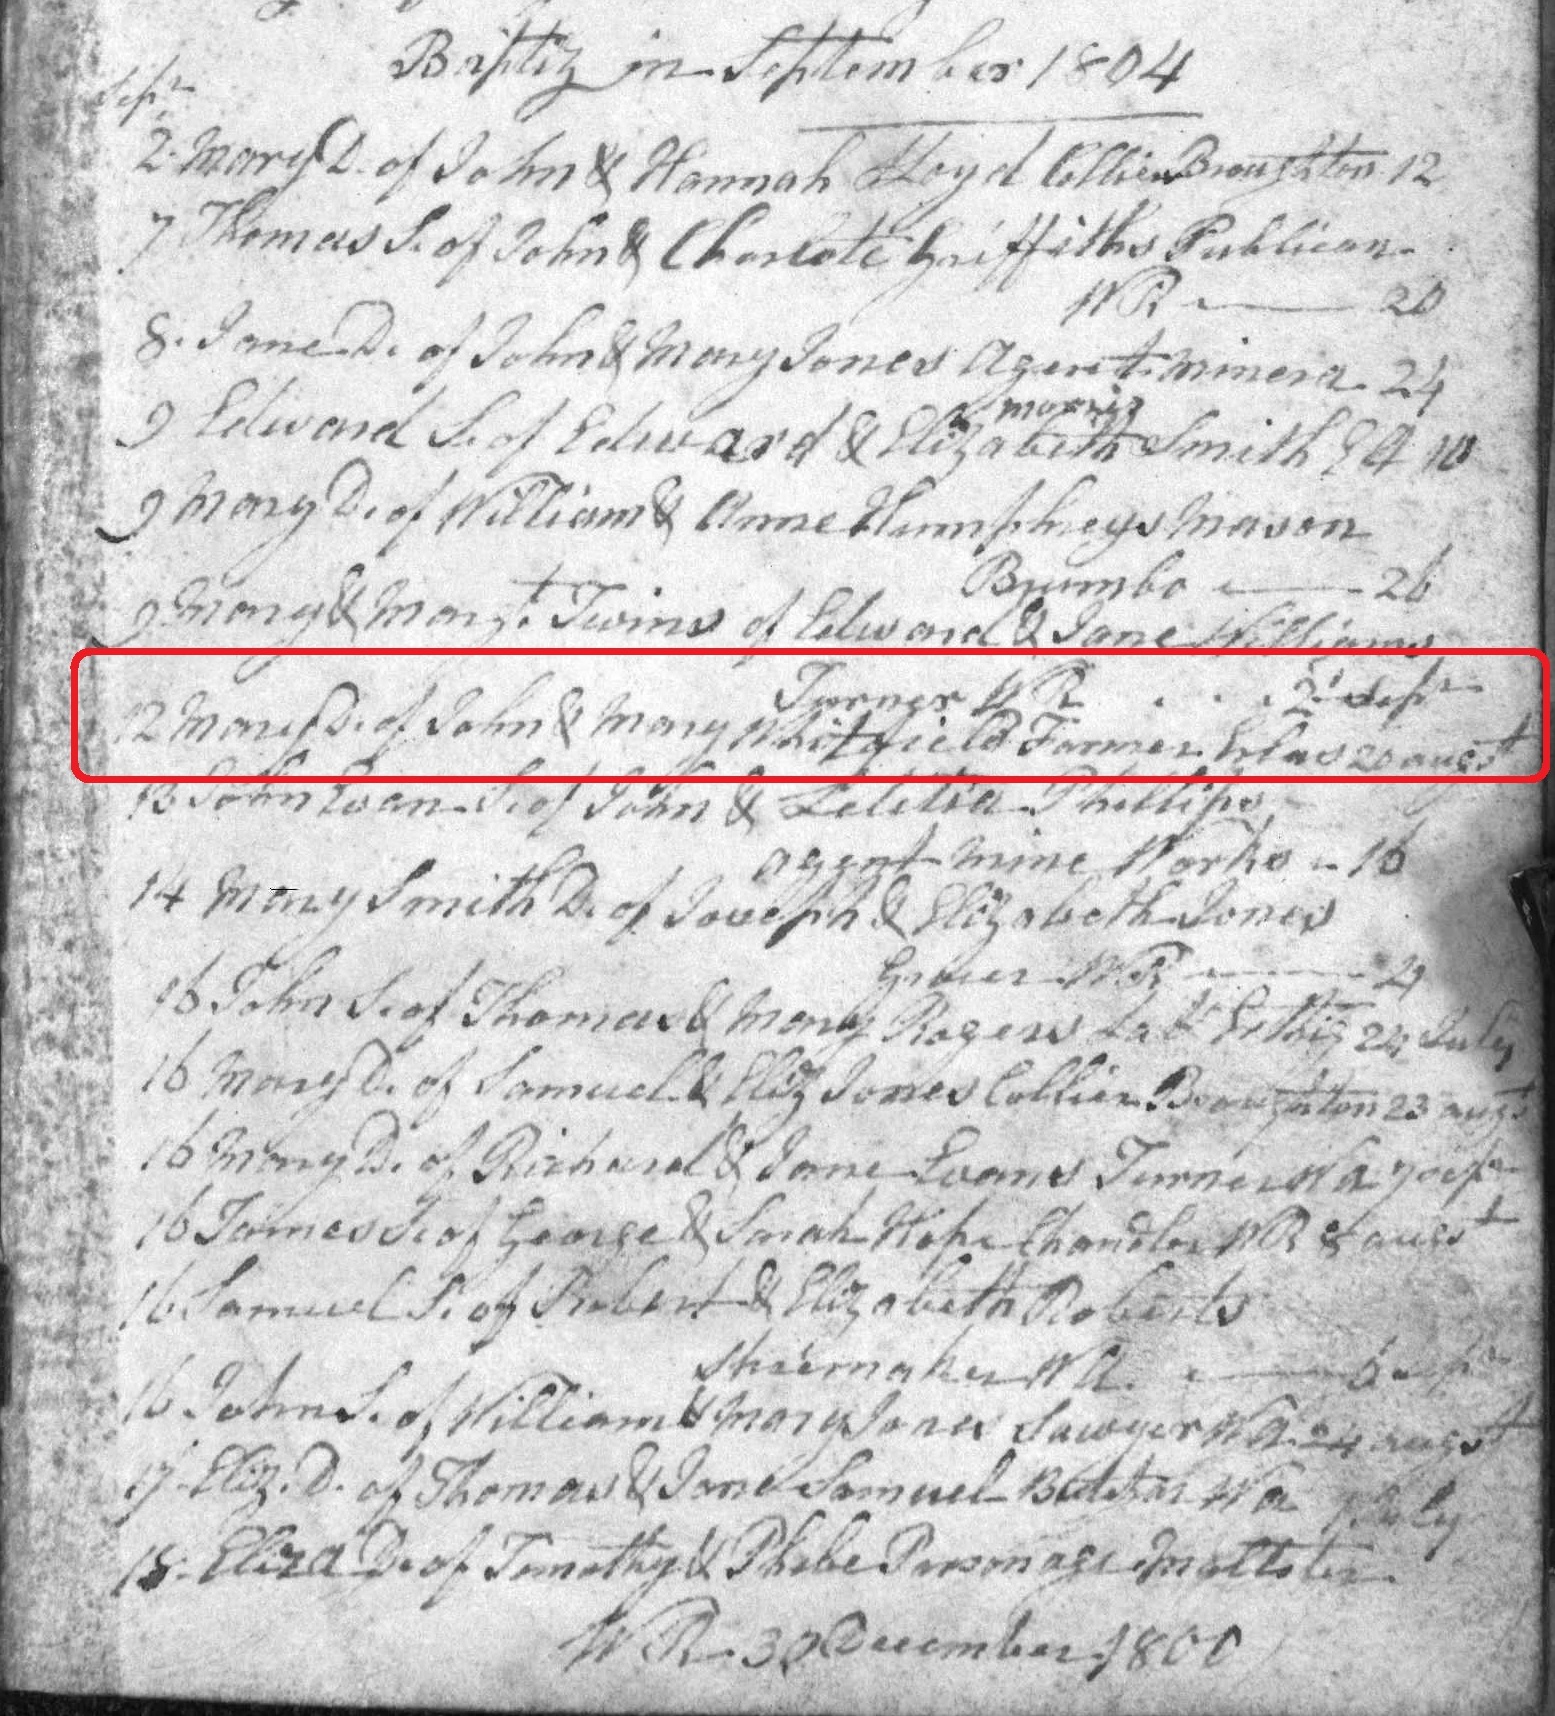 Baptiz in September 1804
Sepr
2 Mary D. of John & Hannah Lloyd Collier Broughton 12
7 Thomas S. of John & Charlote Griffiths Publican
WR 20
8. Jane D. of John & Mary Jones Agent Minera 24
9 Edward S. of Edward & Elizabeth Smith 10
9 Mary D. of William & Anne Humphreys Mason
Brumbo 26
9 Mary & Margt Twins of Edward & Jane Williams
Turner WR . . . 2 Sepr
12 Mary D. of John & Mary Whitfield Farmer Erlas 20 augst
13 John Evan S. of John & Letitia Phillips
agent mine Works 16
14 Mary Smith D. of Joseph & Elizabeth Jones
Grocer WR 21
16 John S. of Thomas & Mary Rogers Labr 24 July
16 Mary D. of Samuel & Eliz Jones Collier Broughton 23 augst
16 Mary D. of Richard & Jane Evans Turner Wa 7 Sepr
16 James S. of George & Sarah Hope Chandler WR 8 augst
16 Samuel S. of Robert & Elizabeth Roberts
Shoemaker WA 6 Sepr
16 John S. of William & Mary Jones Sawyer WA 24 augst
17 Eliz. D. of Thomas & Jane Samuel Butcher Wa July
18 Eliza D. of Timothy & Phebe Parsonage Maltster
WR 30 December 1800